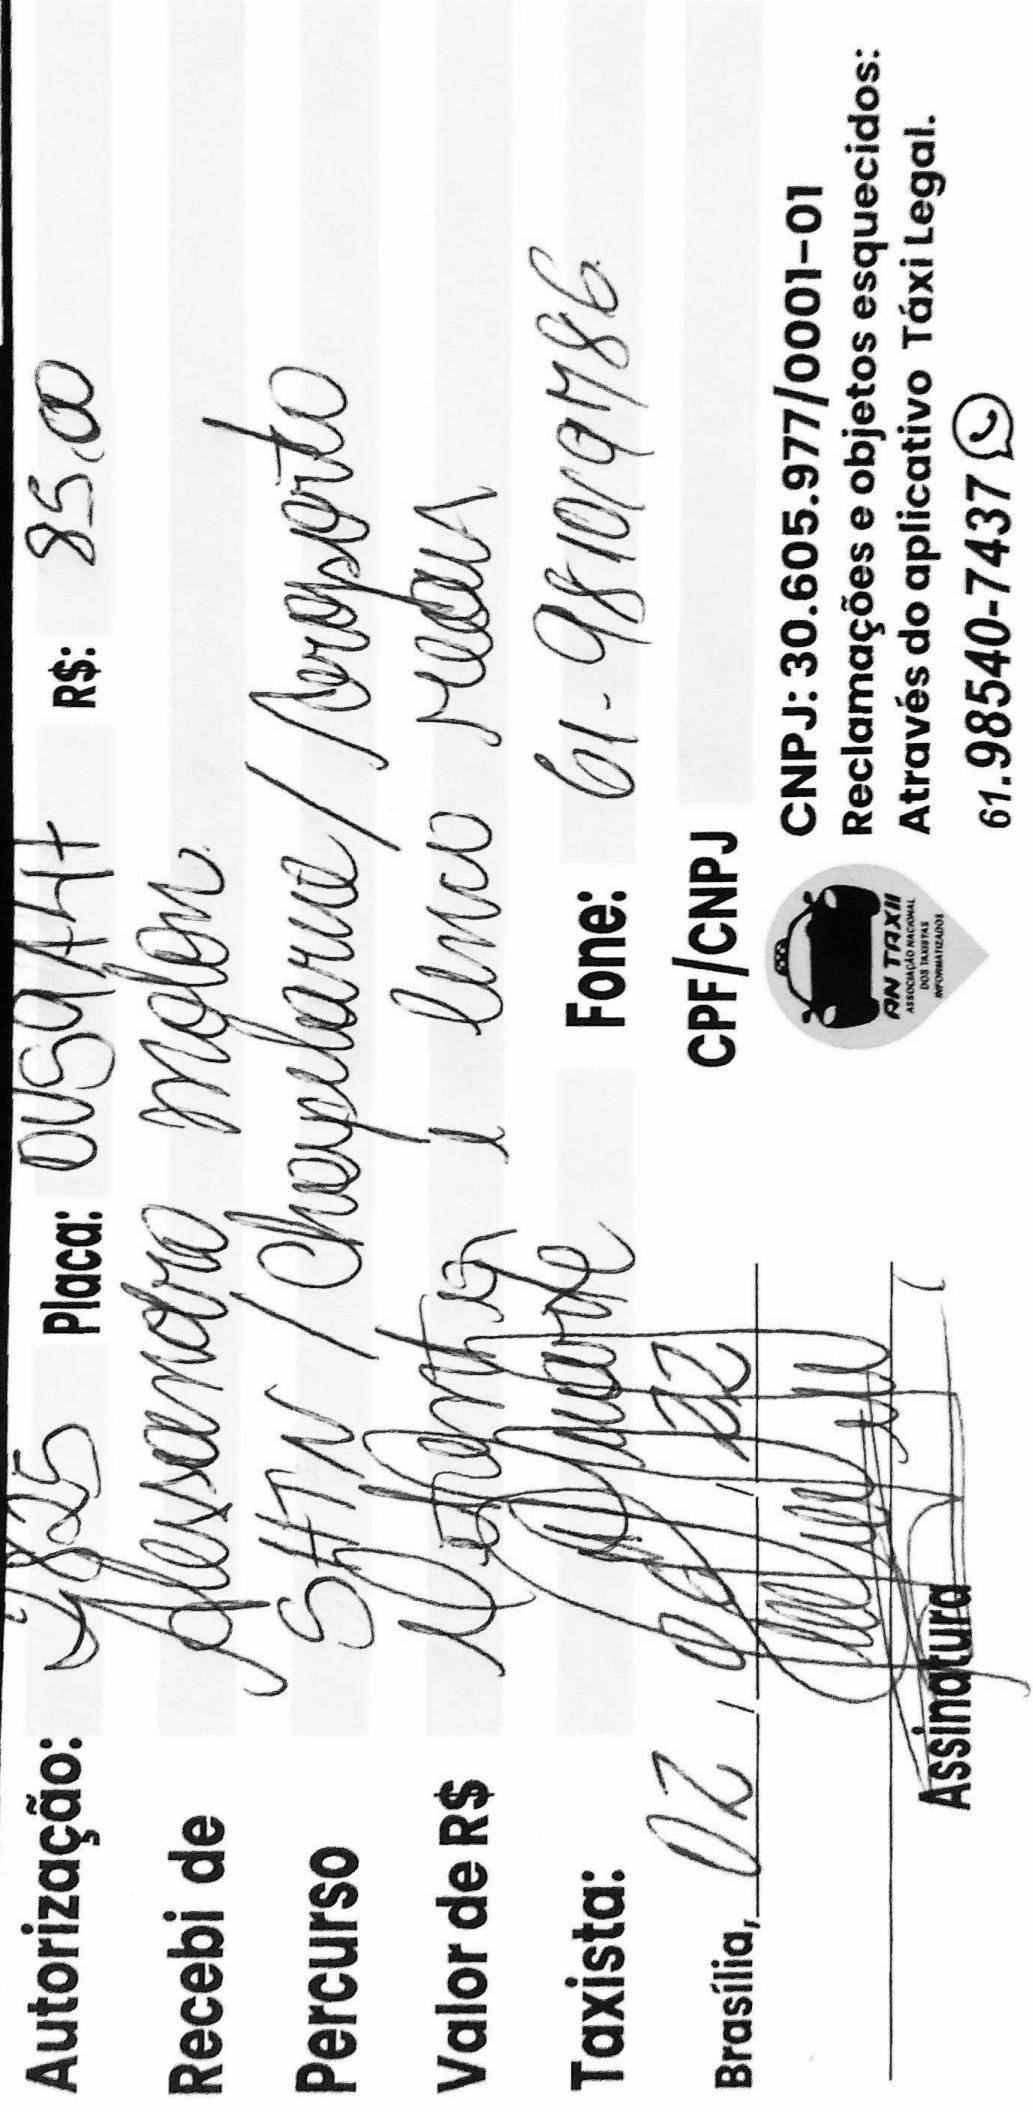 Autorização: 2825 Placa: OVS9A44 R$: 85,00
Recebi de Alessandro Molon
Percurso SHTN / Chapelaria / Aeroporto
Valor de R$ e cinco reais
Taxista: Fone: 61-981019786
Brasília, 02 22
CPF/CNPJ
Assinatura
AN TAXII
ASSOCIAÇÃO NACIONAL
DOS TAXISTAS
INFORMATIZADOS
CNPJ: 30.605.977/0001-01
Reclamações e objetos esquecidos:
Através do aplicativo Táxi Legal.
61.98540-7437